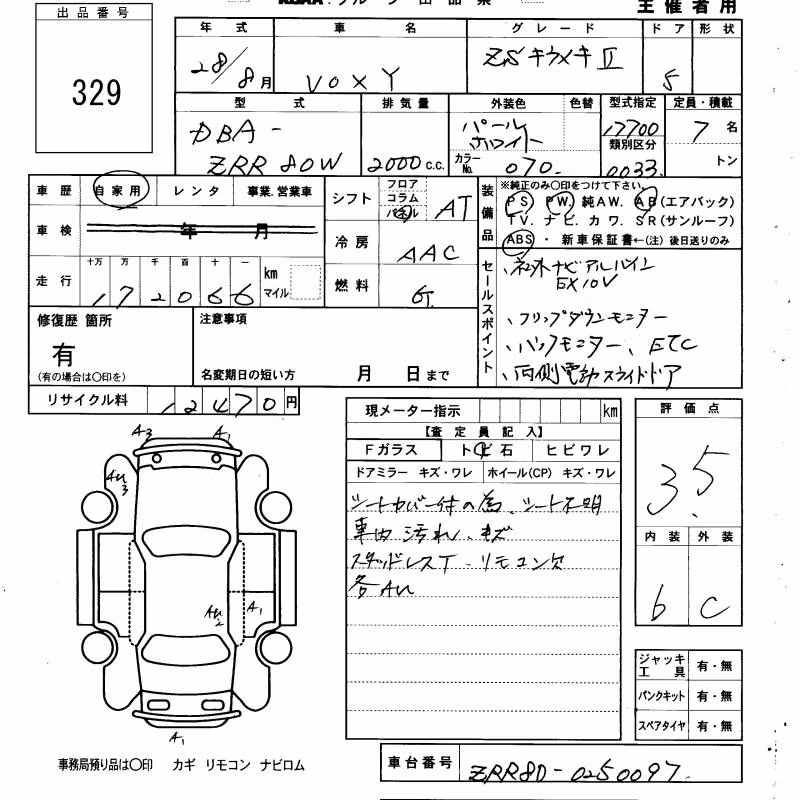 主催者用
出品番号
329
年式 車名 グレード ドア 形状
28/8月 VOXY ZSキラメキⅡ 5
型式 排気量 外装色 色替 型式指定 定員・積載
DBA- パール ホワイト 17700 7名
類別区分
ZRR80W 2000c.c. カラーNo. 070. 0033. トン
車歴 自家用 レンタ 事業.営業車
車検 年 月
走行 十万 万 千 百 十 一
172066 km マイル
シフト フロア コラム パネル AT
冷房 AAC
燃料 G.
装備品 ※純正のみ〇印をつけて下さい。
PS PW. 純AW. AB(エアバック)
TV. ナビ. カワ. SR(サンルーフ)
ABS ・ 新車保証書←(注) 後日送りのみ
セールスポイント
、社外ナビ アルパイン
EX10V
、フリップダウンモニター
、バックモニター、ETC
、両側電動スライドドア
修復歴 箇所
有
(有の場合は〇印を)
注意事項
名変期日の短い方 月 日まで
リサイクル料 12470円
現メーター指示 km
【査定員記入】
Fガラス トビ石 ヒビワレ
ドアミラー キズ・ワレ ホイール(CP) キズ・ワレ
シートカバー付の為、シート不明
車内 汚れ、キズ
スタッドレスT. リモコン欠
各AU
評価点
3.5
内装 外装
6 C
A3 A1
AU3
AU2 A1
A1
ジャッキ工具 有・無
パンクキット 有・無
スペアタイヤ 有・無
事務局預り品は〇印 カギ リモコン ナビロム
車台番号 ZRR80-0250097.